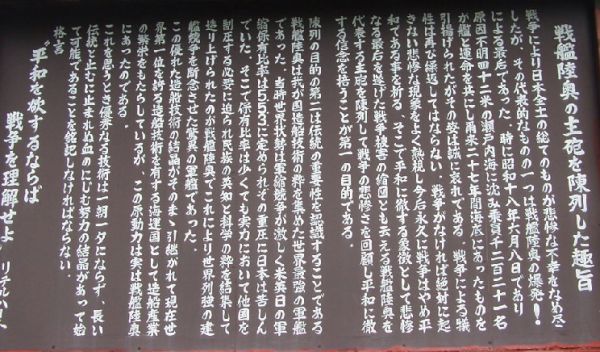 戦艦陸奥の主砲を陳列した趣旨
戦争により日本全土の総てのものが悲惨な不幸をなめ尽
したが、その代表的なものの一つは戦艦陸奥の爆発!
による爆沈であった。時は昭和十八年六月八日であり
原因不明四十二米の瀬戸内海に沈み乗員千二百二十一名
が艦と運命を共にし爾来二十七年間海底にあったものを
引揚げられたがその姿は誠に哀れである。戦争による犠
牲は再び繰返してはならない、戦争がなければ絶対に起
きない悲惨な現象をよく熟視し今后永久に戦争はやめ平
和である事を祈る、そこで平和に徹する象徴として悲惨
なる最后を遂げた戦争被害の偉図とも云える戦艦陸奥を
代表する主砲を陳列して戦争の悲惨さを回顧し平和に徹
する信念を持つことが第一の目的である。
陳列の目的の第二は伝統の重要性を認識することである
戦艦陸奥は我が国造船技術の粋を集めた世界最強の軍艦
であった。当時世界大勢は軍縮競争が激しく米英日の軍
縮保有比率は5 5 3に定められその重圧に日本は苦しん
でいた。そこで保有比率は少くても実力において他国を
制圧する必要に迫られ民族の英知と科学の粋を結集して
造り上げられたのが戦艦陸奥でこれにより世界列強の建
艦競争を断念させた驚異の軍艦であった。
この優れた造船技術の結晶がそのまゝ引継がれて現在世
界第一位を誇る造船技術を有する海運国として造船産業
の繁栄をもたらしているが、この原動力は実は戦艦陸奥
にあったのである。
これを思うとき優秀なる技術は一朝一夕にならず、長い
伝統と止むに止まれぬ血のにじむ努力の結晶があって始
めて可能であることを銘記しなければならない。
格言
〝平和を欲するならば
戦争を理解せよ〟 リデルハート